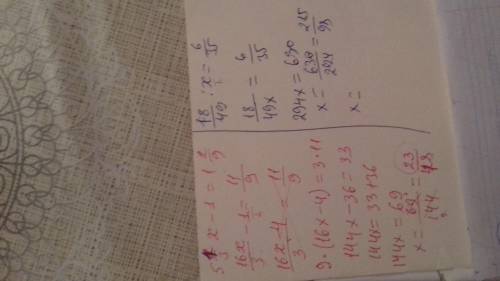 5 1/3 x - 1 = 1 2/9
16x/3 - 1 = 11/9
16x-4/3 = 11/9
9·(16x-4) = 3·11
144x-36=33
144x=33+36
144x=69
x = 69/144 = 23/48
18/49 : x = 6/35
18/49x = 6/35
294x=630
x = 630/294 = 215/98
x =